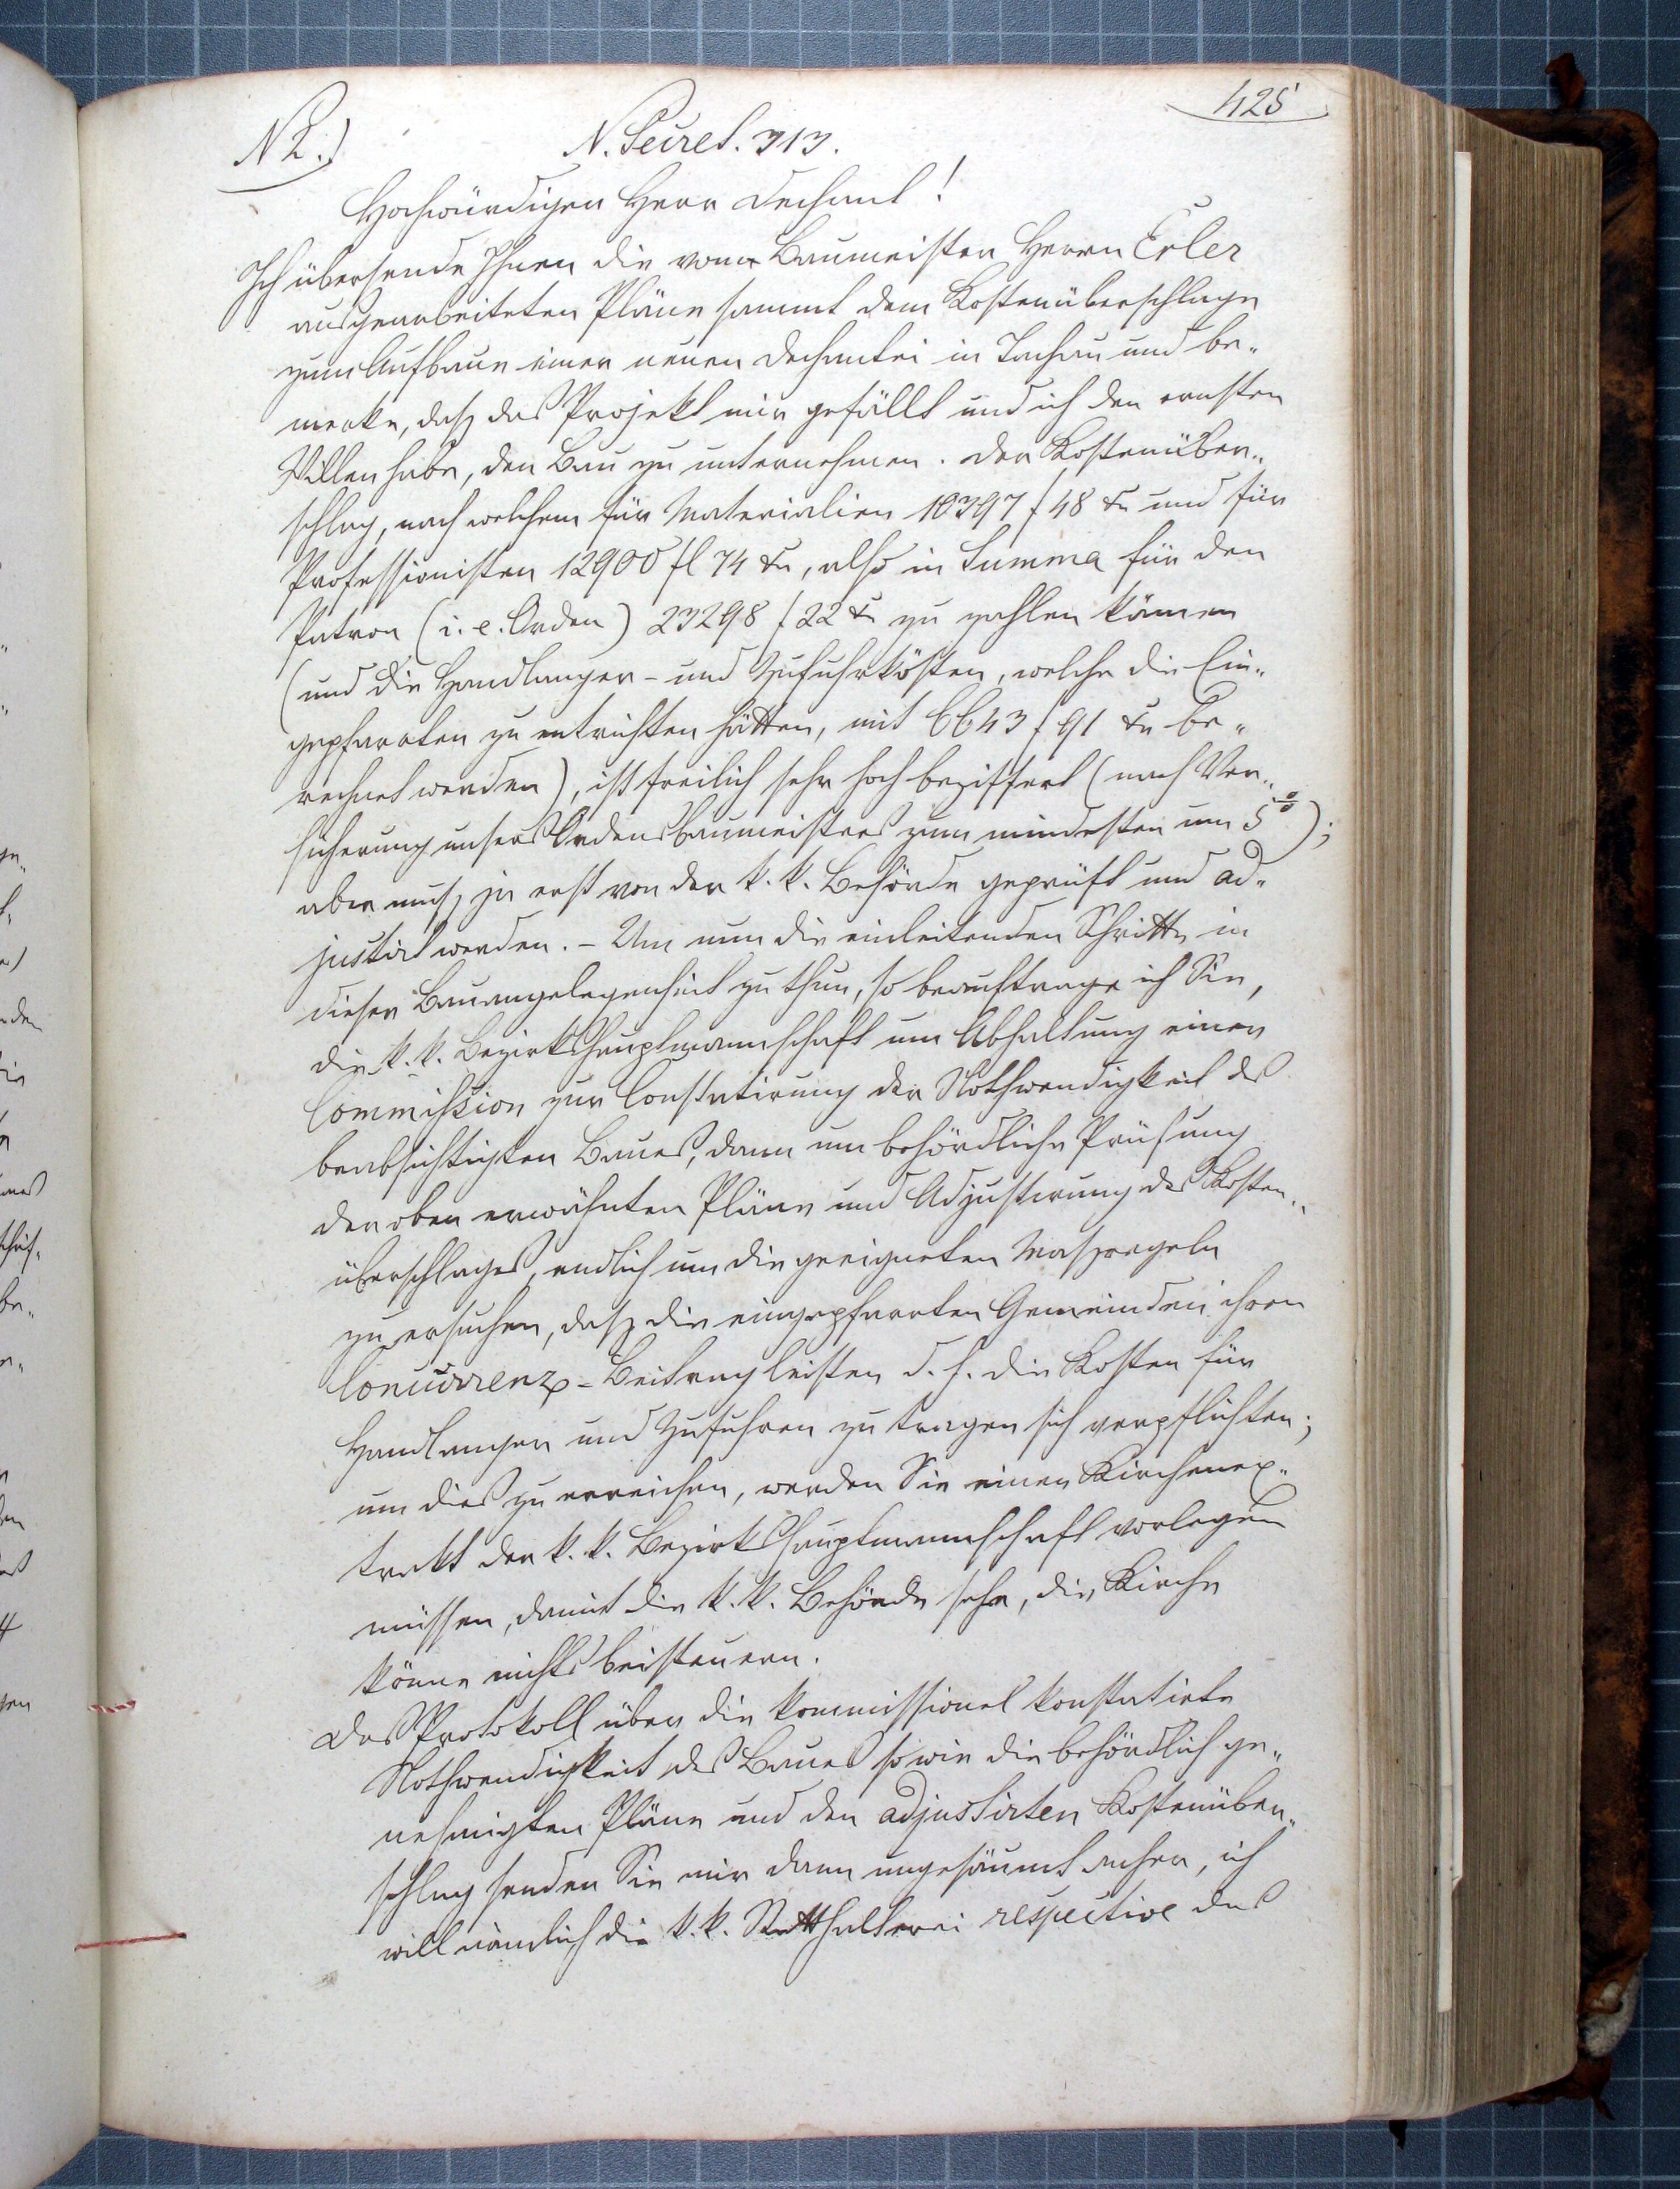 425
N 2.)
N. Secret. 313.
Hochwürdiger Herr Dechant!
Ich übersende Ihnen die vom Baumeister Herrn Erler
ausgearbeiteten Pläne sammt dem Kostenüberschlage
zum Aufbaue einer neuen Dechantei in Tachau und be-
merke, dasz das Projekt mir gefällt und ich den ernsten
Willen habe, den Bau zu unternehmen. Der Kostenüber-
schlag, nach welchem für Materialien 10397 f 48 xr und für
Professionisten 12900 fl 74 xr, also in Summa für den
Patron (i. e. Orden) 23298 f 22 xr zu zahlen kämen
(und die Handlanger- und Zufuhrkösten, welche die Ein-
gepfarrten zu entrichten hätten, mit 6643 f 91 xr be-
rechnet werden), ist freilich sehr hoch beziffert (nach Ver-
sicherung unsers Ordensbaumeisters zum mindesten um 5 %);
aber musz ja erst von der k. k. Behörde geprüft und ad-
justirt werden. – Um nun die einleitenden Schritte in
dieser Bauangelegenheit zu thun, so beauftrage ich Sie,
die k. k. Bezirkshauptmannschaft um Abhaltung einer
Commission zur Constatirung der Nothwendigkeit des
beabsichtigten Baues, dann um behördliche Prüfung
der oben erwähnten Pläne und Adjustirung des Kosten-
überschlages, endlich um die geeigneten Maszregeln
zu ersuchen, dasz die eingepfarrten Gemeinden ihren
Concurrenz-Beitrag leisten d. h. die Kosten für
Handlanger und Zufuhren zu tragen sich verpflichten;
um dies zu erreichen, werden Sie einen Kirchenex-
trakt der k. k. Bezirkshauptmannschaft vorlegen
müssen, damit die k. k. Behörde sehe, die Kirche
könne nichts beisteuern.
Das Protokoll über die kommissionel konstatirte
Nothwendigkeit des Baues so wie die behördlich ge-
nehmigten Pläne und den adjustirten Kostenüber-
schlag senden Sie mir dann ungesäumt anher, ich
will nämlich die k. k. Statthalterei respective das